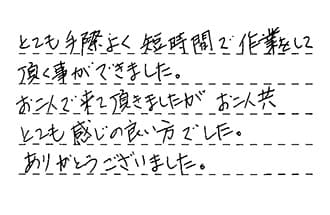 とても手際よく短時間で作業をして
頂く事ができました。
お二人で来て頂きましたがお二人共
とても感じの良い方でした。
ありがとうございました。